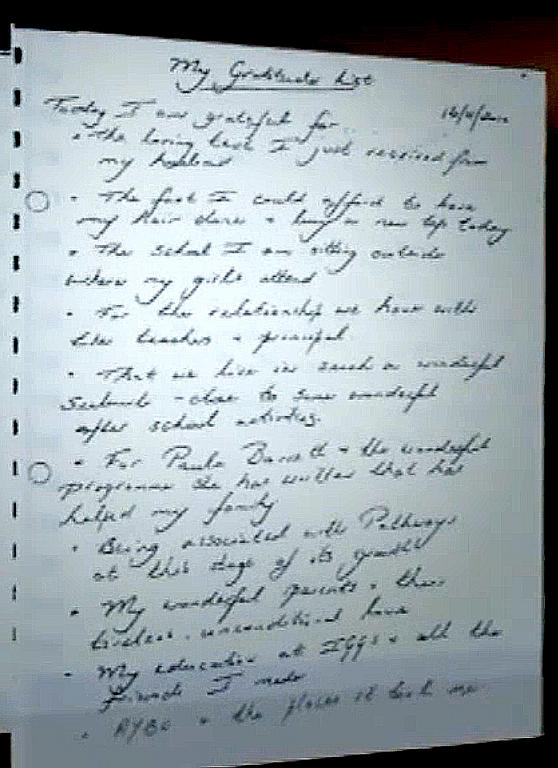 My Gratitude List
Today I am grateful for..
• The loving text I just received from
my husband
• The fact I could afford to have
my hair done & buy a new top today
• The school I am sitting outside
where my girls attend
• For the relationship we have with
the teachers & principal.
• That we live in such a wonderful
suburb - close to some wonderful
after school activities.
• For Paula Barrett & the wonderful
programme she has written that has
helped my family
• Being associated with Pathways
at this stage of its growth
• My wonderful parents & their
tireless, unconditional love
• My education at IGGS & all the
friends I made
• AYBC & the places it took me